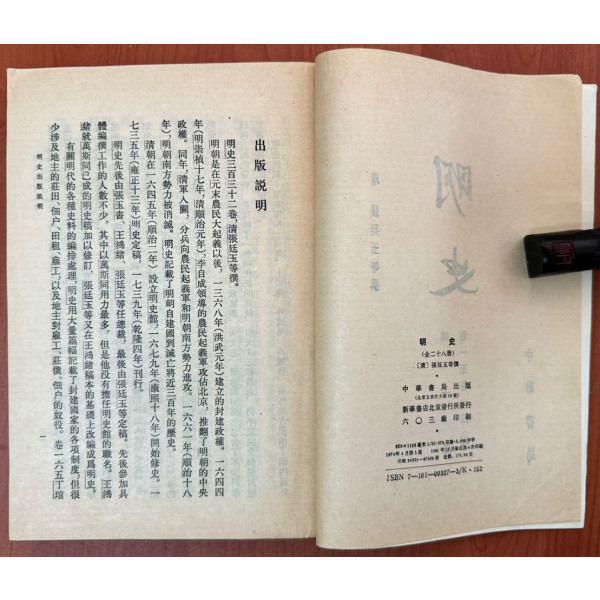 明史
(全二十八册)
〔清〕張廷玉等撰
中華書局出版
(北京王府井大街36號)
新華書店北京發行所發行
六〇三廠印刷
1974年4月第1版
ISBN 7—101—00327—3/K·152
出版説明
明史三百三十二卷,清張廷玉等撰。
明朝是在元末農民大起義以後,一三六八年(洪武元年)建立的封建政權。一六四四
年(明崇禎十七年,清順治元年),李自成領導的農民起義軍攻佔北京,推翻了明朝的中央
政權。同年,清軍入關,分兵向農民起義軍和明朝南方勢力進攻。一六六一年(順治十八
年),明朝南方勢力被消滅。明史記載了明朝自建國到滅亡將近三百年的歷史。
清朝在一六四五年(順治二年)設立明史館,一六七九年(康熙十八年)開始修史,一
七三五年(雍正十三年)明史定稿,一七三九年(乾隆四年)刊行。
明史先後由張玉書、王鴻緒、張廷玉等任總裁,最後由張廷玉等定稿。先後參加具
體編撰工作的人數不少,其中以萬斯同用力最多,但是他没有擔任明史館的職名。王鴻
緒就萬斯同已成的明史稿加以修訂,張廷玉等又在王鴻緒稿本的基礎上改編成爲明史。
有關明代的各種史料的編排處理,明史用大量篇幅記載了封建國家的各項制度,但很
少涉及地主的莊田、佃户、田租、雇工,以及地主對雇工、莊僕、佃户的奴役。卷一六五丁瑄
明史出版説明
一